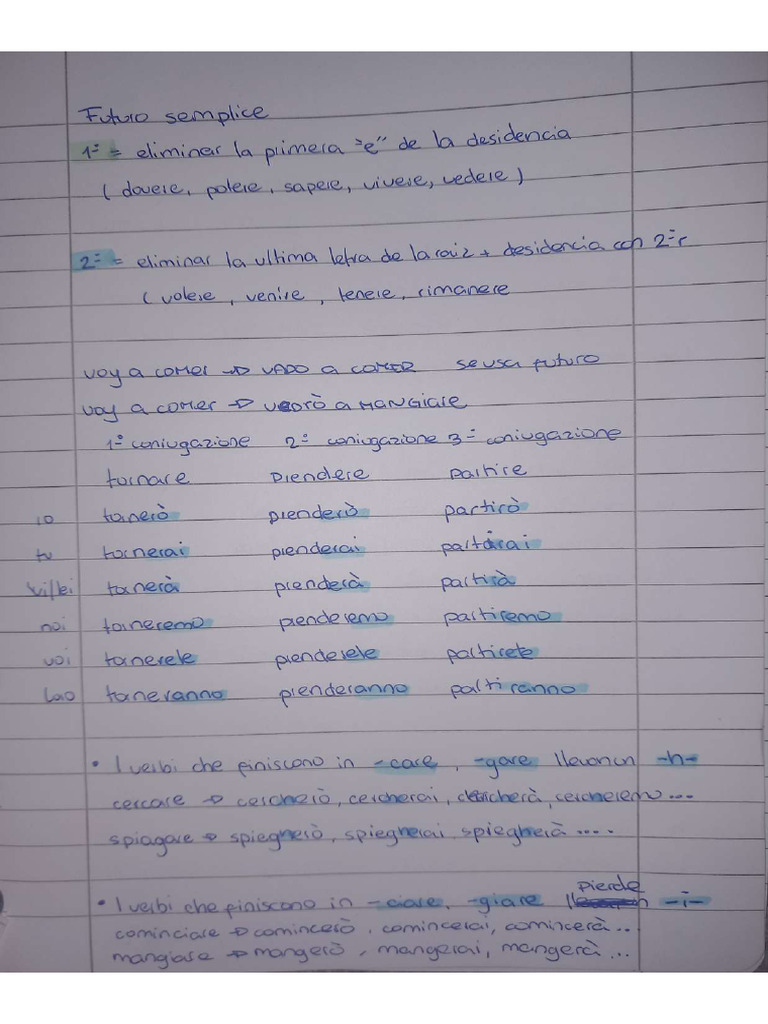 Futuro semplice
1ª = eliminar la primera "e" de la desidencia
(dovere, potere, sapere, vivere, vedere)
2ª = eliminar la ultima letra de la raiz + desidencia con 2ª r
(volere, venire, tenere, rimanere
voy a comer → VADO a COMER se usa futuro
voy a comer → VEDRÒ a MANGIARE
1ª coniugazione 2ª coniugazione 3ª coniugazione
tornare prendere partire
io tornerò prenderò partirò
tu tornerai prenderai partirai
lui/lei tornerà prenderà partirà
noi torneremo prenderemo partiremo
voi tornerete prenderete partirete
loro torneranno prenderanno partiranno
• I verbi che finiscono in -care, -gare llevan un -h-
cercare → cercherò, cercherai, cercherà, cercheremo...
spiagare → spiegherò, spiegherai, spiegherà....
• I verbi che finiscono in -ciare, -giare pierde -i-
cominciare → comincerò, comincerai, comincerà..
mangiare → mangerò, mangerai, mangerà...